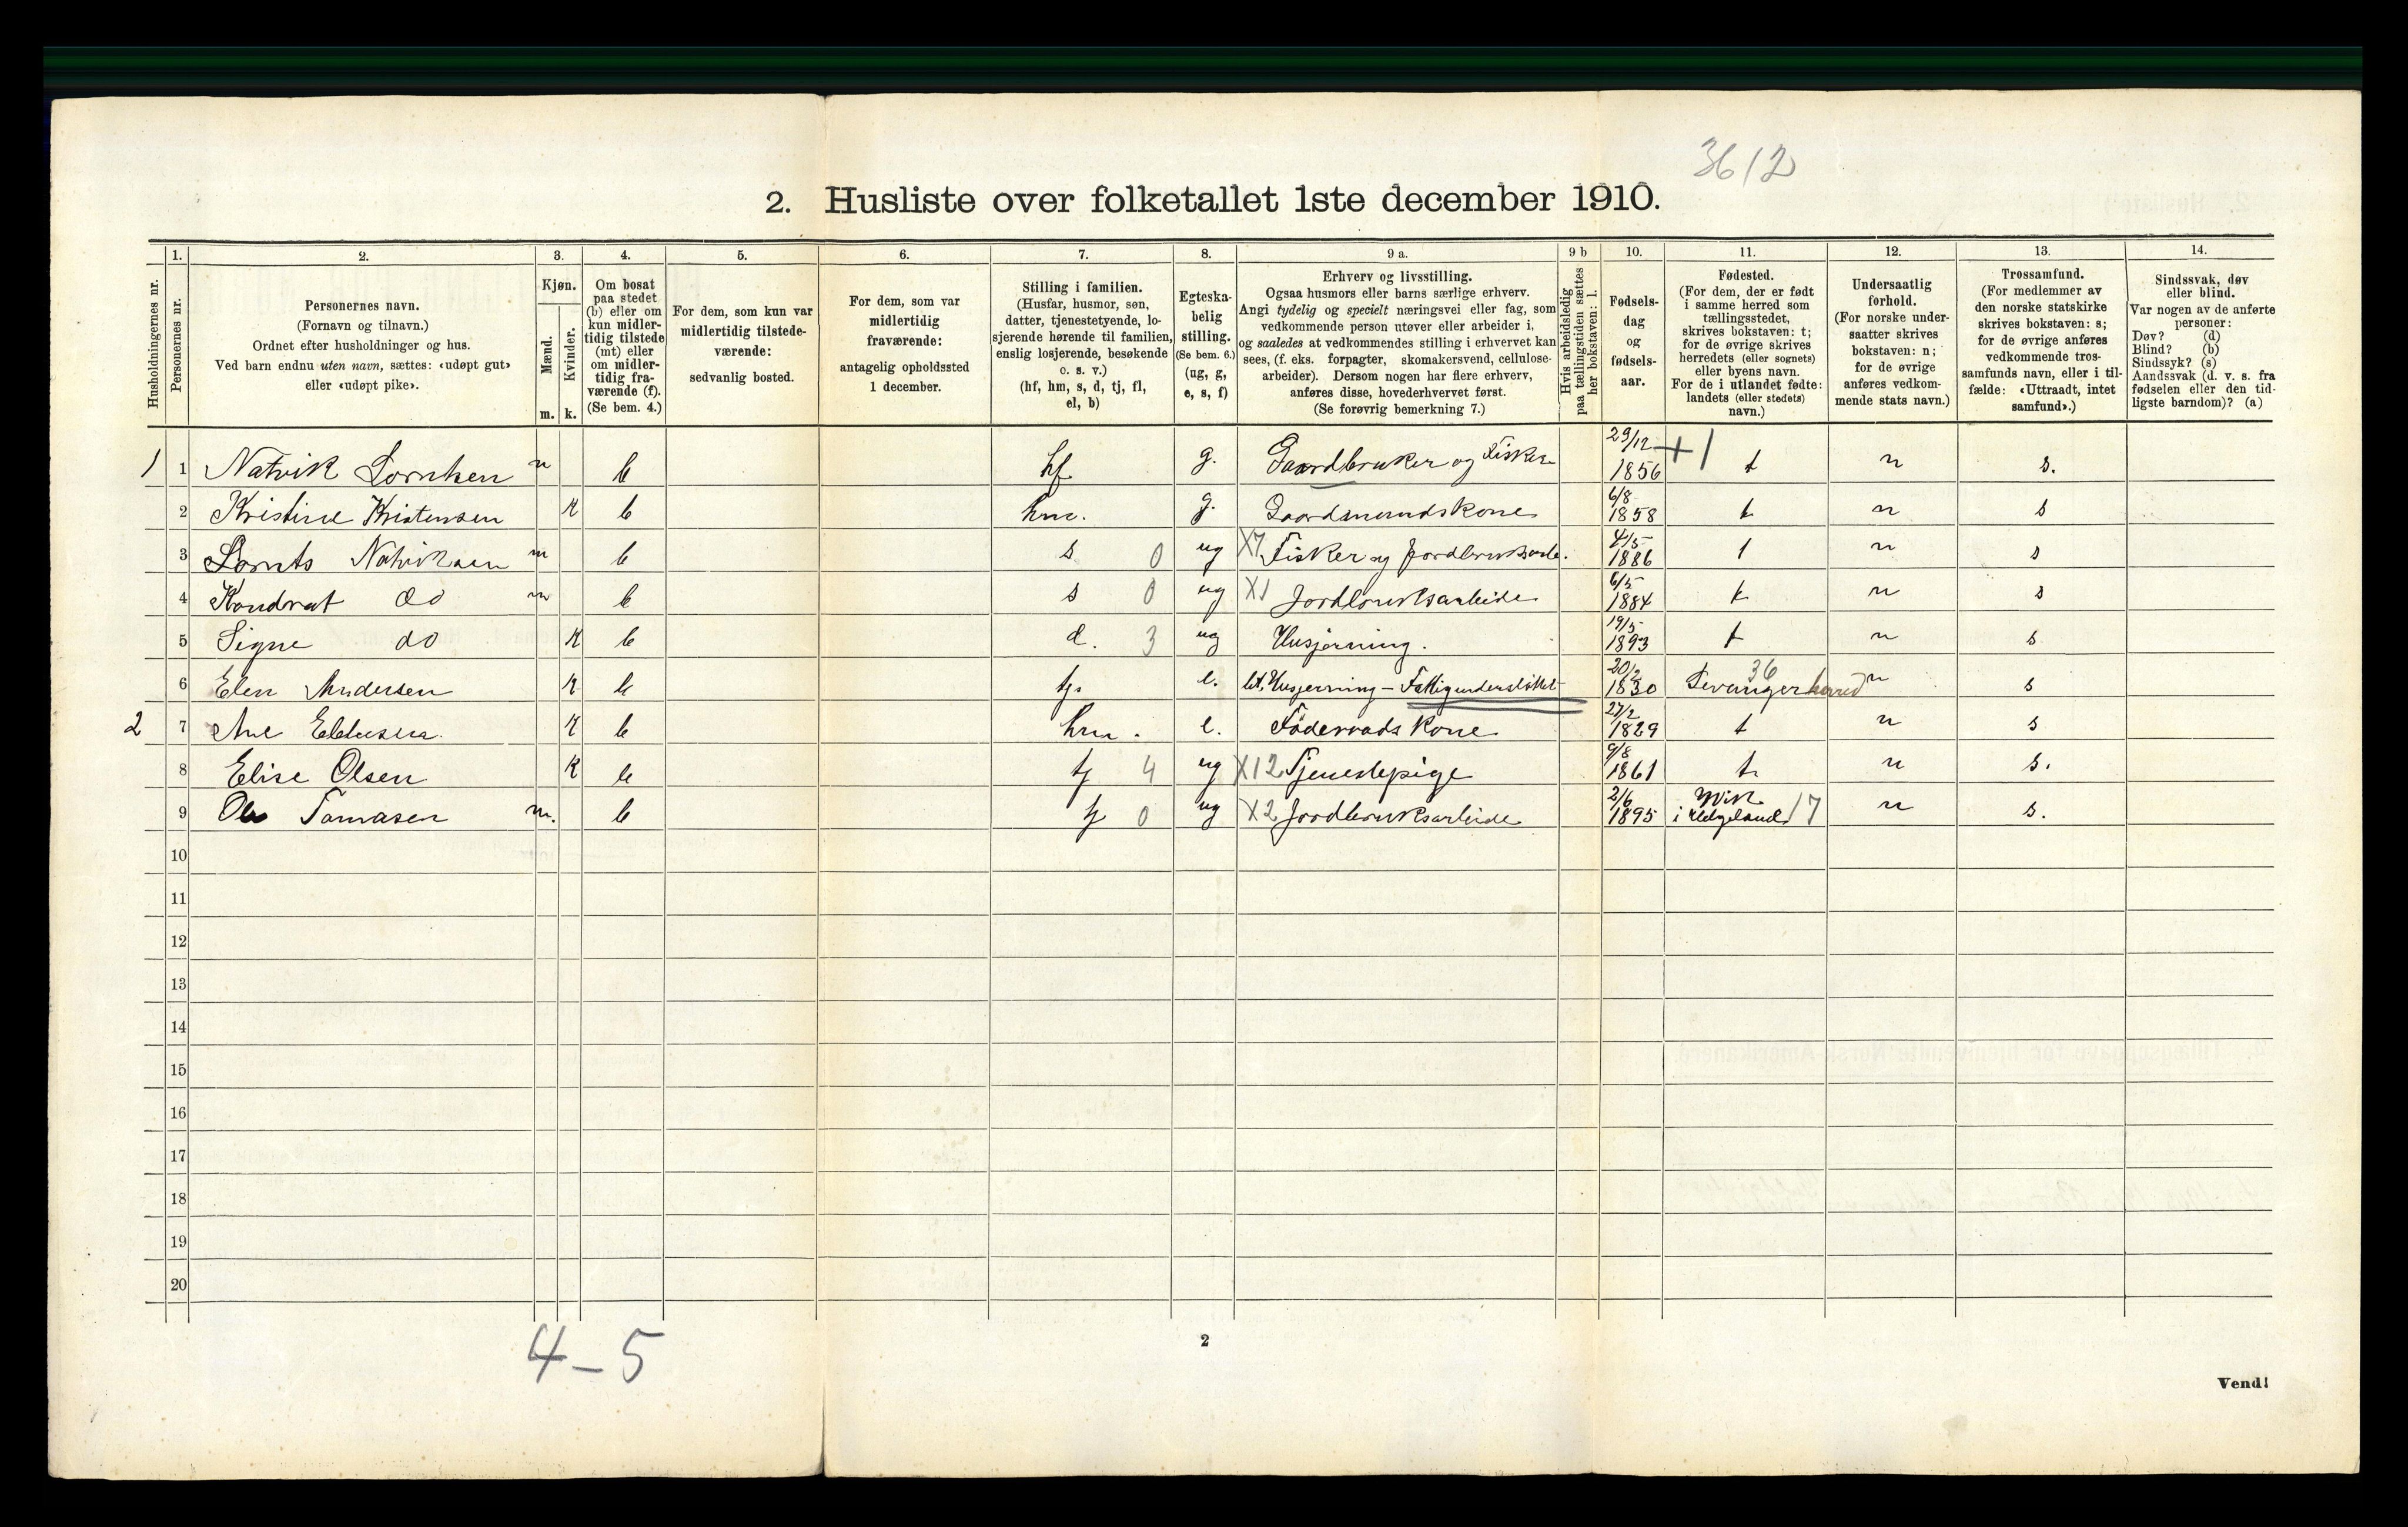 3612
2. Husliste over folketallet 1ste december 1910.
Husholdningernes nr.
1.
Personernes nr.
2.
Personernes navn.
(Fornavn og tilnavn.)
Ordnet efter husholdninger og hus.
Ved barn endnu uten navn, sættes: «udøpt gut»
eller «udøpt pike».
3.
Kjøn.
Mænd.
m.
Kvinder.
k.
4.
Om bosat
paa stedet
(b) eller om
kun midler-
tidig tilstede
(mt) eller
om midler-
tidig fra-
værende (f).
(Se bem. 4.)
5.
For dem, som kun var
midlertidig tilstede-
værende:
sedvanlig bosted.
6.
For dem, som var
midlertidig
fraværende:
antagelig opholdssted
1 december.
7.
Stilling i familien.
(Husfar, husmor, søn,
datter, tjenestetyende, lo-
sjerende hørende til familien,
enslig losjerende, besøkende
o. s. v.)
(hf, hm, s, d, tj, fl,
el, b)
8.
Egteska-
belig
stilling.
(Se bem. 6.)
(ug, g,
e, s, f)
9 a.
Erhverv og livsstilling.
Ogsaa husmors eller barns særlige erhverv.
Angi tydelig og specielt næringsvei eller fag, som
vedkommende person utøver eller arbeider i,
og saaledes at vedkommendes stilling i erhvervet kan
sees, (f. eks. forpagter, skomakersvend, cellulose-
arbeider). Dersom nogen har flere erhverv,
anføres disse, hovederhvervet først.
(Se forøvrig bemerkning 7.)
9 b
Hvis arbeidsledig
paa tællingstiden sættes
her bokstaven: l.
10.
Fødsels-
dag
og
fødsels-
aar.
11.
Fødested.
(For dem, der er født
i samme herred som
tællingsstedet,
skrives bokstaven: t;
for de øvrige skrives
herredets (eller sognets)
eller byens navn.
For de i utlandet fødte:
landets (eller stedets)
navn.)
12.
Undersaatlig
forhold.
(For norske under-
saatter skrives
bokstaven: n;
for de øvrige
anføres vedkom-
mende stats navn.)
13.
Trossamfund.
(For medlemmer av
den norske statskirke
skrives bokstaven: s;
for de øvrige anføres
vedkommende tros-
samfunds navn, eller i til-
fælde: «Uttraadt, intet
samfund».)
14.
Sindssvak, døv
eller blind.
Var nogen av de anførte
personer:
Døv? (d)
Blind? (b)
Sindssyk? (s)
Aandssvak (d. v. s. fra
fødselen eller den tid-
ligste barndom)? (a)
1 1 Natvik Lorntsen m b hf g. Gaardbruker og Fisker 29/12 1856 +1 t n s.
2 Kristine Kristensen K b hm. g. Gaardmandskone 6/8 1858 t n s
3 Lornts Natviksen m b s 0 ug X7 Fisker og Jordbruksarbe. 4/5 1886 t n s
4 Kondrat do m b s 0 ug X1 Jordbruksarbeide 6/5 1884 t n s
5 Signe do K b d. 3 ug Husjerning. 19/5 1893 t n s
6 Elen Andersen K b tj. e. Husjerning - Fattigunderstøttet 20/2 1830 36 Levanger herred n s
2 7 Ane K b hm. e. Föderaads Kone 27/2 1829 t n s
8 Elise Olsen K b tj 4 ug X12 Tjenestepige 9/8 1861 t. n s.
9 Ole Tomasen m. b tj 0 ug X2 Jordbruksarbeide 2/6 1895 Wik i Helgeland 17 n s.
10
11
12
13
14
15
16
17
18
19
20
4-5
2
Vend!